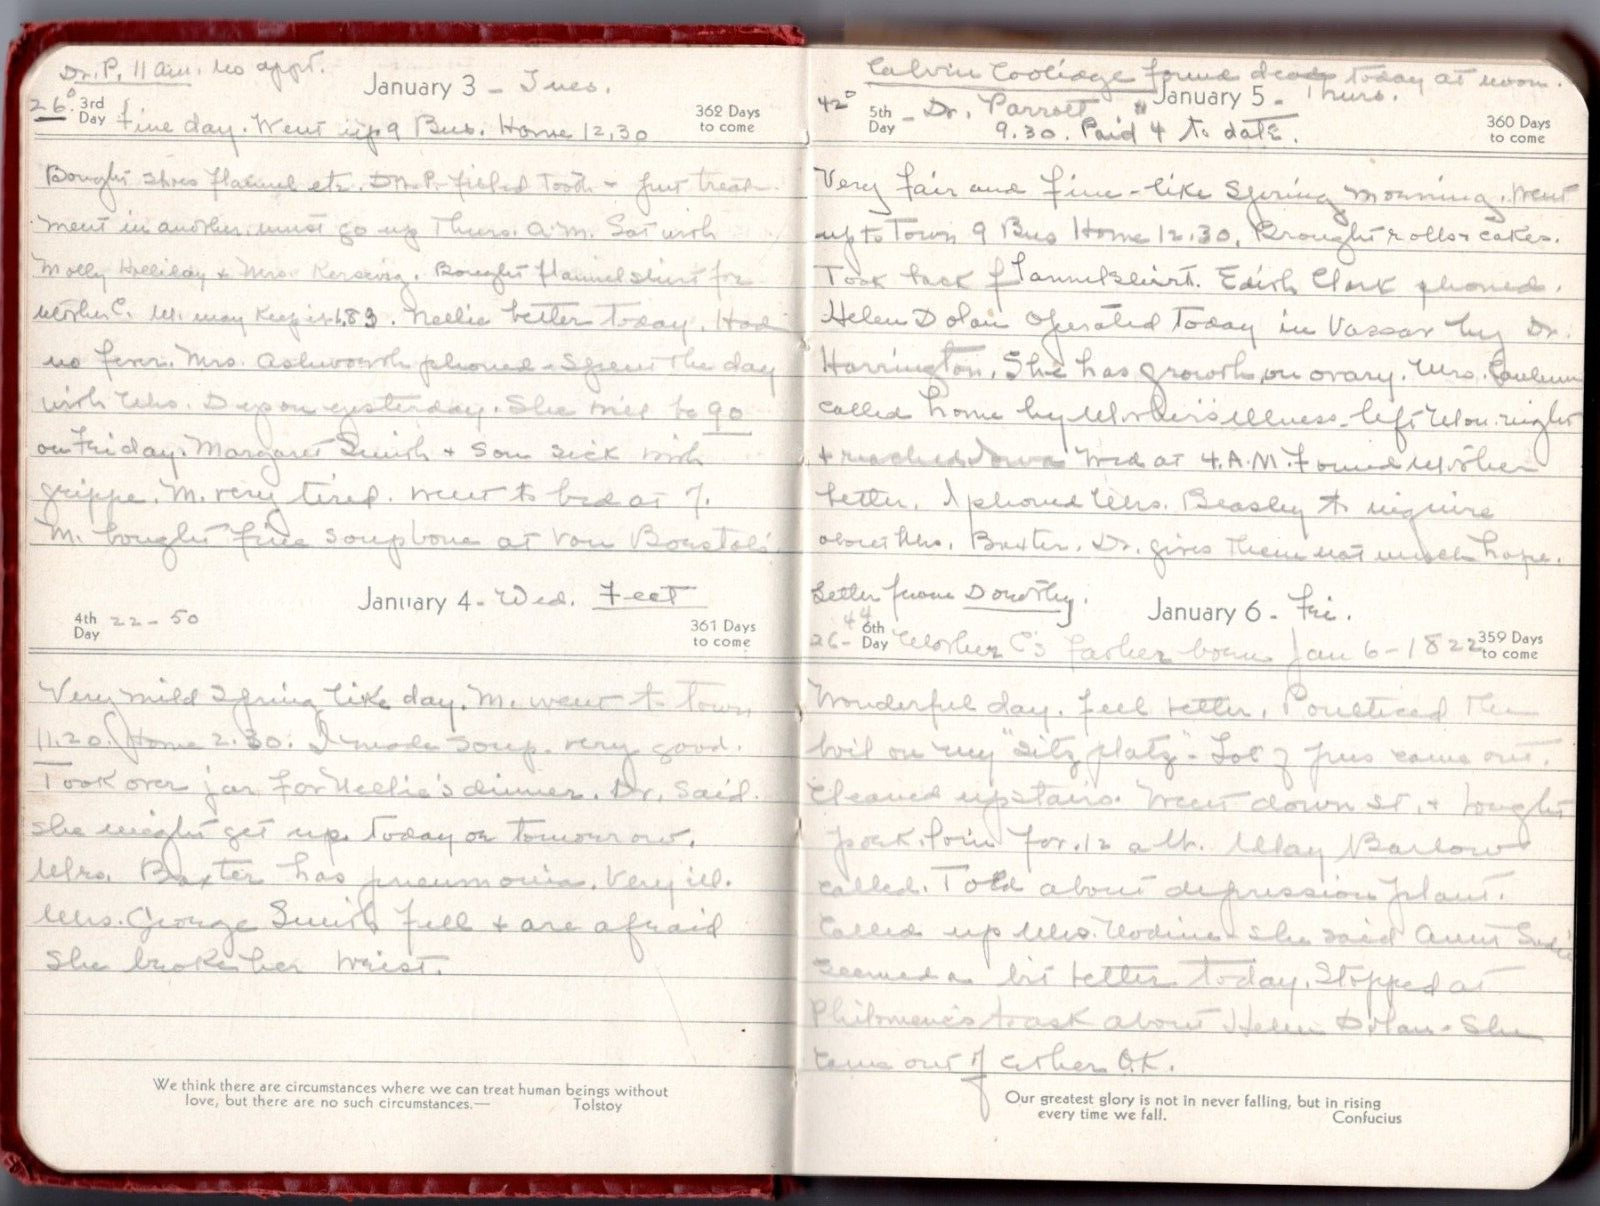 Dr. P. 11 a.m. no appt.
January 3 - Tues.
26° 3rd Day
362 Days to come
Fine day. Went up 9 Bus. Home 12.30
Bought shoes flannel etc. Dr. P. filled Tooth - gave treat-
ment in another. must go up Thurs. a.m. Sat with
Molly Holliday + Mrs. Bought flannel shirt for
Mother C. M. may keep it 1.83. Nellie better today. Had
no fever. Mrs. Ashworth phoned - Spent the day
with Mrs. yesterday. She will be 90
on Friday. Margaret Smith + son sick with
grippe. M. very tired. went to bed at 7.
M. bought fine soupbone at Von Boustal's.
January 4 - Wed. Feet
4th Day 22 - 50
361 Days to come
Very mild Spring like day. M. went to town
11.20. Home 2.30. I made soup. very good.
Took over jar for Nellie's dinner. Dr. said
she might get up today or tomorrow.
Mrs. Baxter has pneumonia. Very ill.
Mrs. George Smith fell + are afraid
she broke her wrist.
We think there are circumstances where we can treat human beings without
love, but there are no such circumstances.— Tolstoy
Calvin Coolidge found dead today at noon.
January 5 - Thurs.
42° 5th Day - Dr. Parrott
9.30. Paid 4 to date.
360 Days to come
Very fair and fine - like Spring morning. Went
up to Town 9 Bus Home 12.30. Brought rolls + cakes.
Took back flannel shirt. Edith Clark phoned.
Helen Dolan operated today in Vassar by Dr.
Harrington. She has growth on ovary. Mrs.
called home by Mother's illness - left Mon. night
+ reached down Wed at 4. A.M. Found Mother
better. I phoned Mrs. Beasley to inquire
about Mrs. Baxter. Dr. gives them not much hope.
Letter from Dorothy.
January 6 - Fri.
44
26 - 6th Day Mother C's father born Jan 6 - 1822
359 Days to come
Wonderful day. feel better. Poulticed the
boil on my "sitz platz" - Lot of pus came out.
Cleaned upstairs. Went down st. + bought
pork loin for .12 a lb. May Barlow
called. Told about depression plant.
Called up Mrs. Nodine - she said Aunt Susie
seemed a bit better today. Stopped at
Philomene's to ask about Helen Dolan - She
came out of ether O.K.
Our greatest glory is not in never falling, but in rising
every time we fall. Confucius